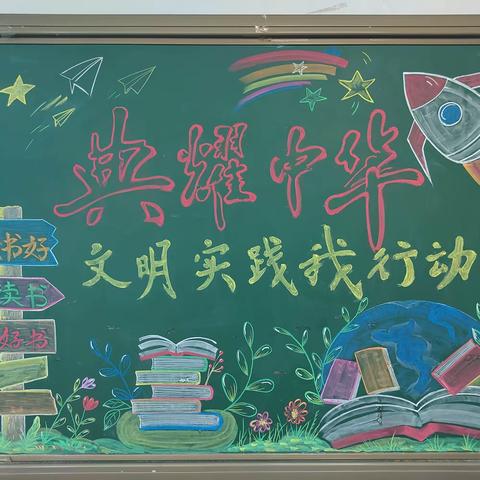 典耀中华
文明实践我行动
书好
读书
好书